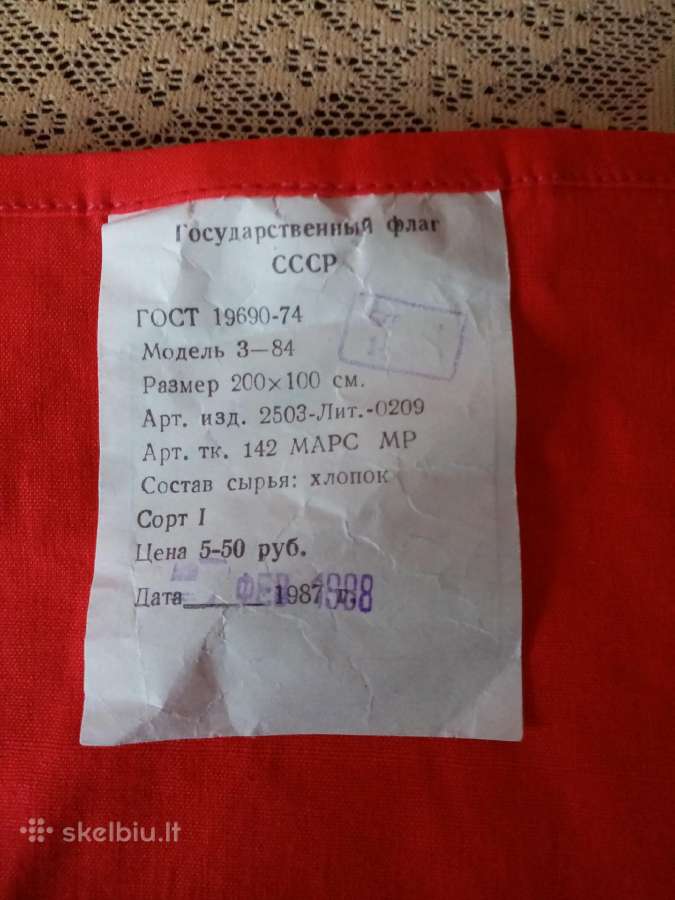 Государственный флаг
СССР
ГОСТ 19690-74
Модель 3—84
Размер 200×100 см.
Арт. изд. 2503-Лит.-0209
Арт. тк. 142 МАРС МР
Состав сырья: хлопок
Сорт I
Цена 5-50 руб.
Дата 1987 г.
ФЕВ 1988
skelbiu.lt